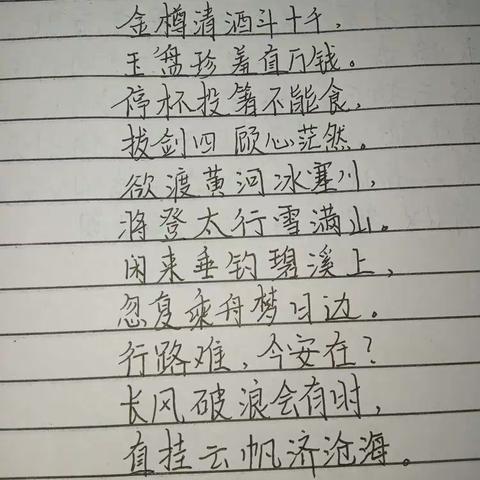 金樽清酒斗十千,
玉盘珍羞直万钱。
停杯投箸不能食,
拔剑四顾心茫然。
欲渡黄河冰塞川,
将登太行雪满山。
闲来垂钓碧溪上,
忽复乘舟梦日边。
行路难,今安在?
长风破浪会有时,
直挂云帆济沧海。